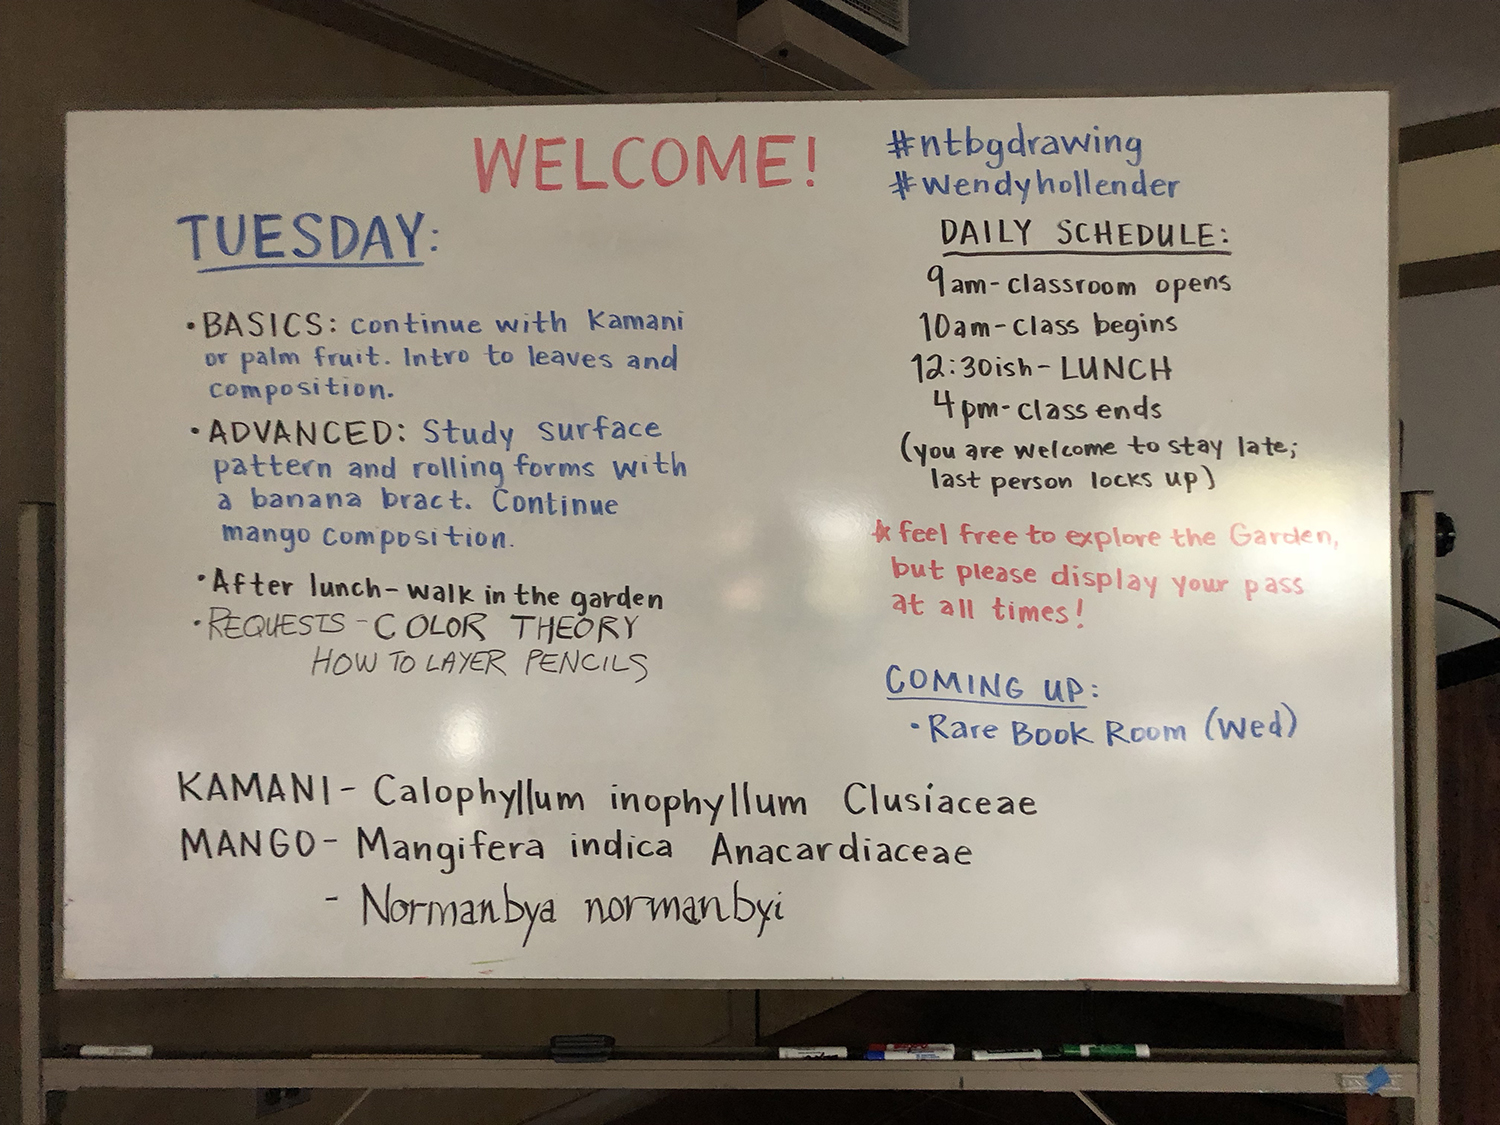 WELCOME!
#ntbgdrawing
#wendyhollender
TUESDAY:
• BASICS: continue with Kamani
or palm fruit. Intro to leaves and
composition.
• ADVANCED: Study surface
pattern and rolling forms with
a banana bract. Continue
mango composition.
• After lunch - walk in the garden
• REQUESTS - COLOR THEORY
HOW TO LAYER PENCILS
DAILY SCHEDULE:
9am - classroom opens
10am - class begins
12:30ish - LUNCH
4pm - class ends
(you are welcome to stay late;
last person locks up)
* feel free to explore the Garden,
but please display your pass
at all times!
COMING UP:
• Rare Book Room (Wed)
KAMANI - Calophyllum inophyllum Clusiaceae
MANGO - Mangifera indica Anacardiaceae
- Normanbya normanbyi